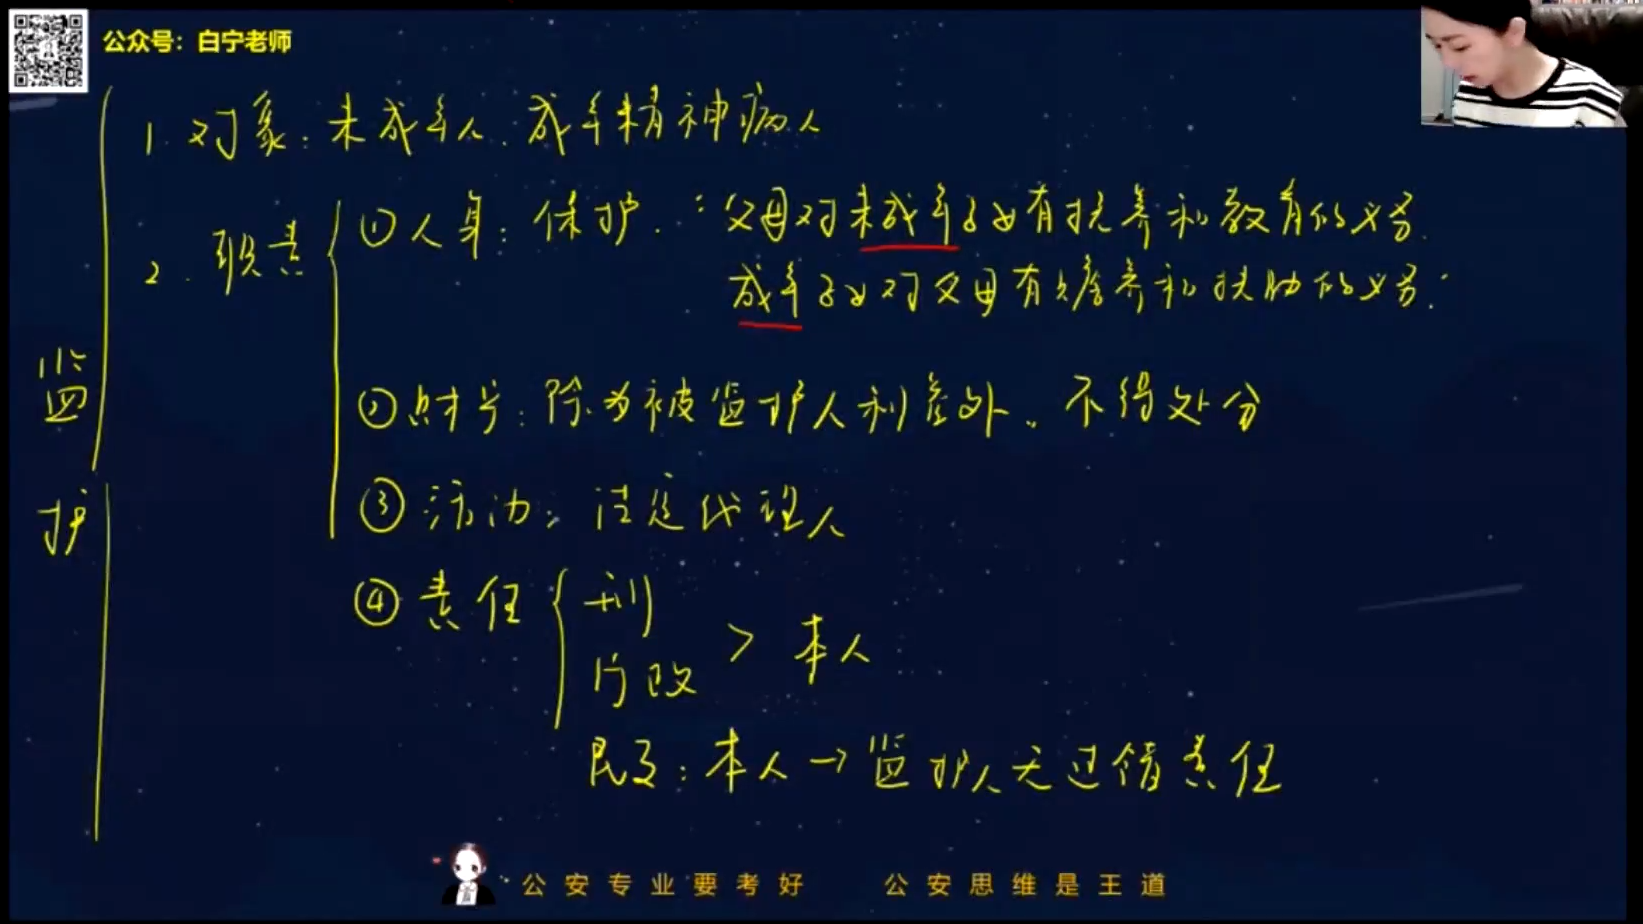 公众号：白宁老师
1. 对象：未成年人、成年精神病人
2. 职责
①人身：保护：父母对未成年子女有抚养和教育的义务.
成年子女对父母有赡养和扶助的义务.
监护
②财产：除为被监护人利益外，不得处分
③活动：法定代理人
④责任
刑
行政 > 本人
民事：本人→监护人无过错责任
公安专业要考好 公安思维是王道